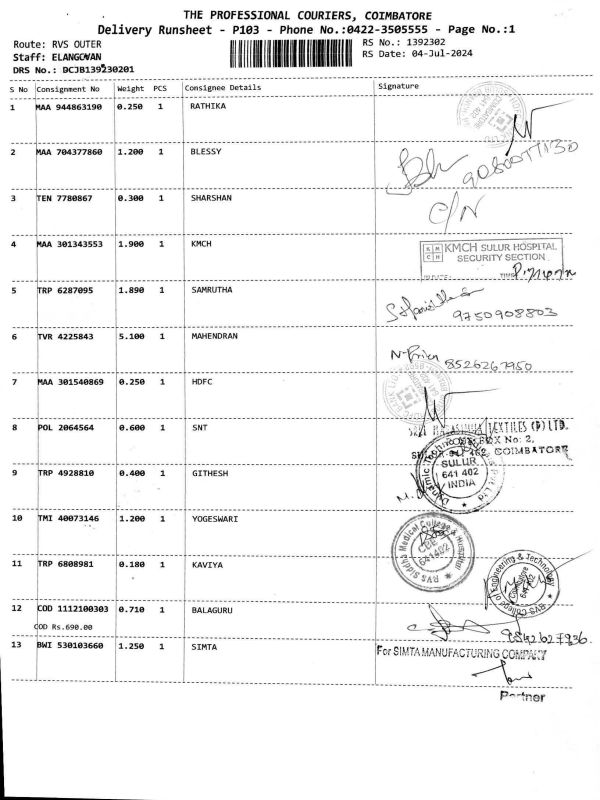 THE PROFESSIONAL COURIERS, COIMBATORE
Delivery Runsheet - P103 - Phone No.:0422-3505555 - Page No.:1
Route: RVS OUTER
RS No.: 1392302
Staff: ELANGOVAN
RS Date: 04-Jul-2024
DRS No.: DCJB139230201
S No Consignment No Weight PCS Consignee Details Signature
1 MAA 944863190 0.250 1 RATHIKA
2 MAA 704377860 1.200 1 BLESSY
3 TEN 7780867 0.300 1 SHARSHAN C/N
4 MAA 301343553 1.900 1 KMCH
KMCH SULUR HOSPITAL
SECURITY SECTION
5 TRP 6287095 1.890 1 SAMRUTHA
9750908803
6 TVR 4225843 5.100 1 MAHENDRAN
8526267950
7 MAA 301540869 0.250 1 HDFC
8 POL 2064564 0.600 1 SNT
TEXTILES (P) LTD.
BOX No: 2,
COIMBATORE
9 TRP 4928810 0.400 1 GITHESH
SULUR
641 402
INDIA
10 TMI 40073146 1.200 1 YOGESWARI
RVS Siddha Medical College & Hospital
641402
11 TRP 6808981 0.180 1 KAVIYA
RVS College of Engineering & Technology
Coimbatore
12 COD 1112100303 0.710 1 BALAGURU
COD Rs.690.00
9842627936
13 BWI 530103660 1.250 1 SIMTA
For SIMTA MANUFACTURING COMPANY
Partner